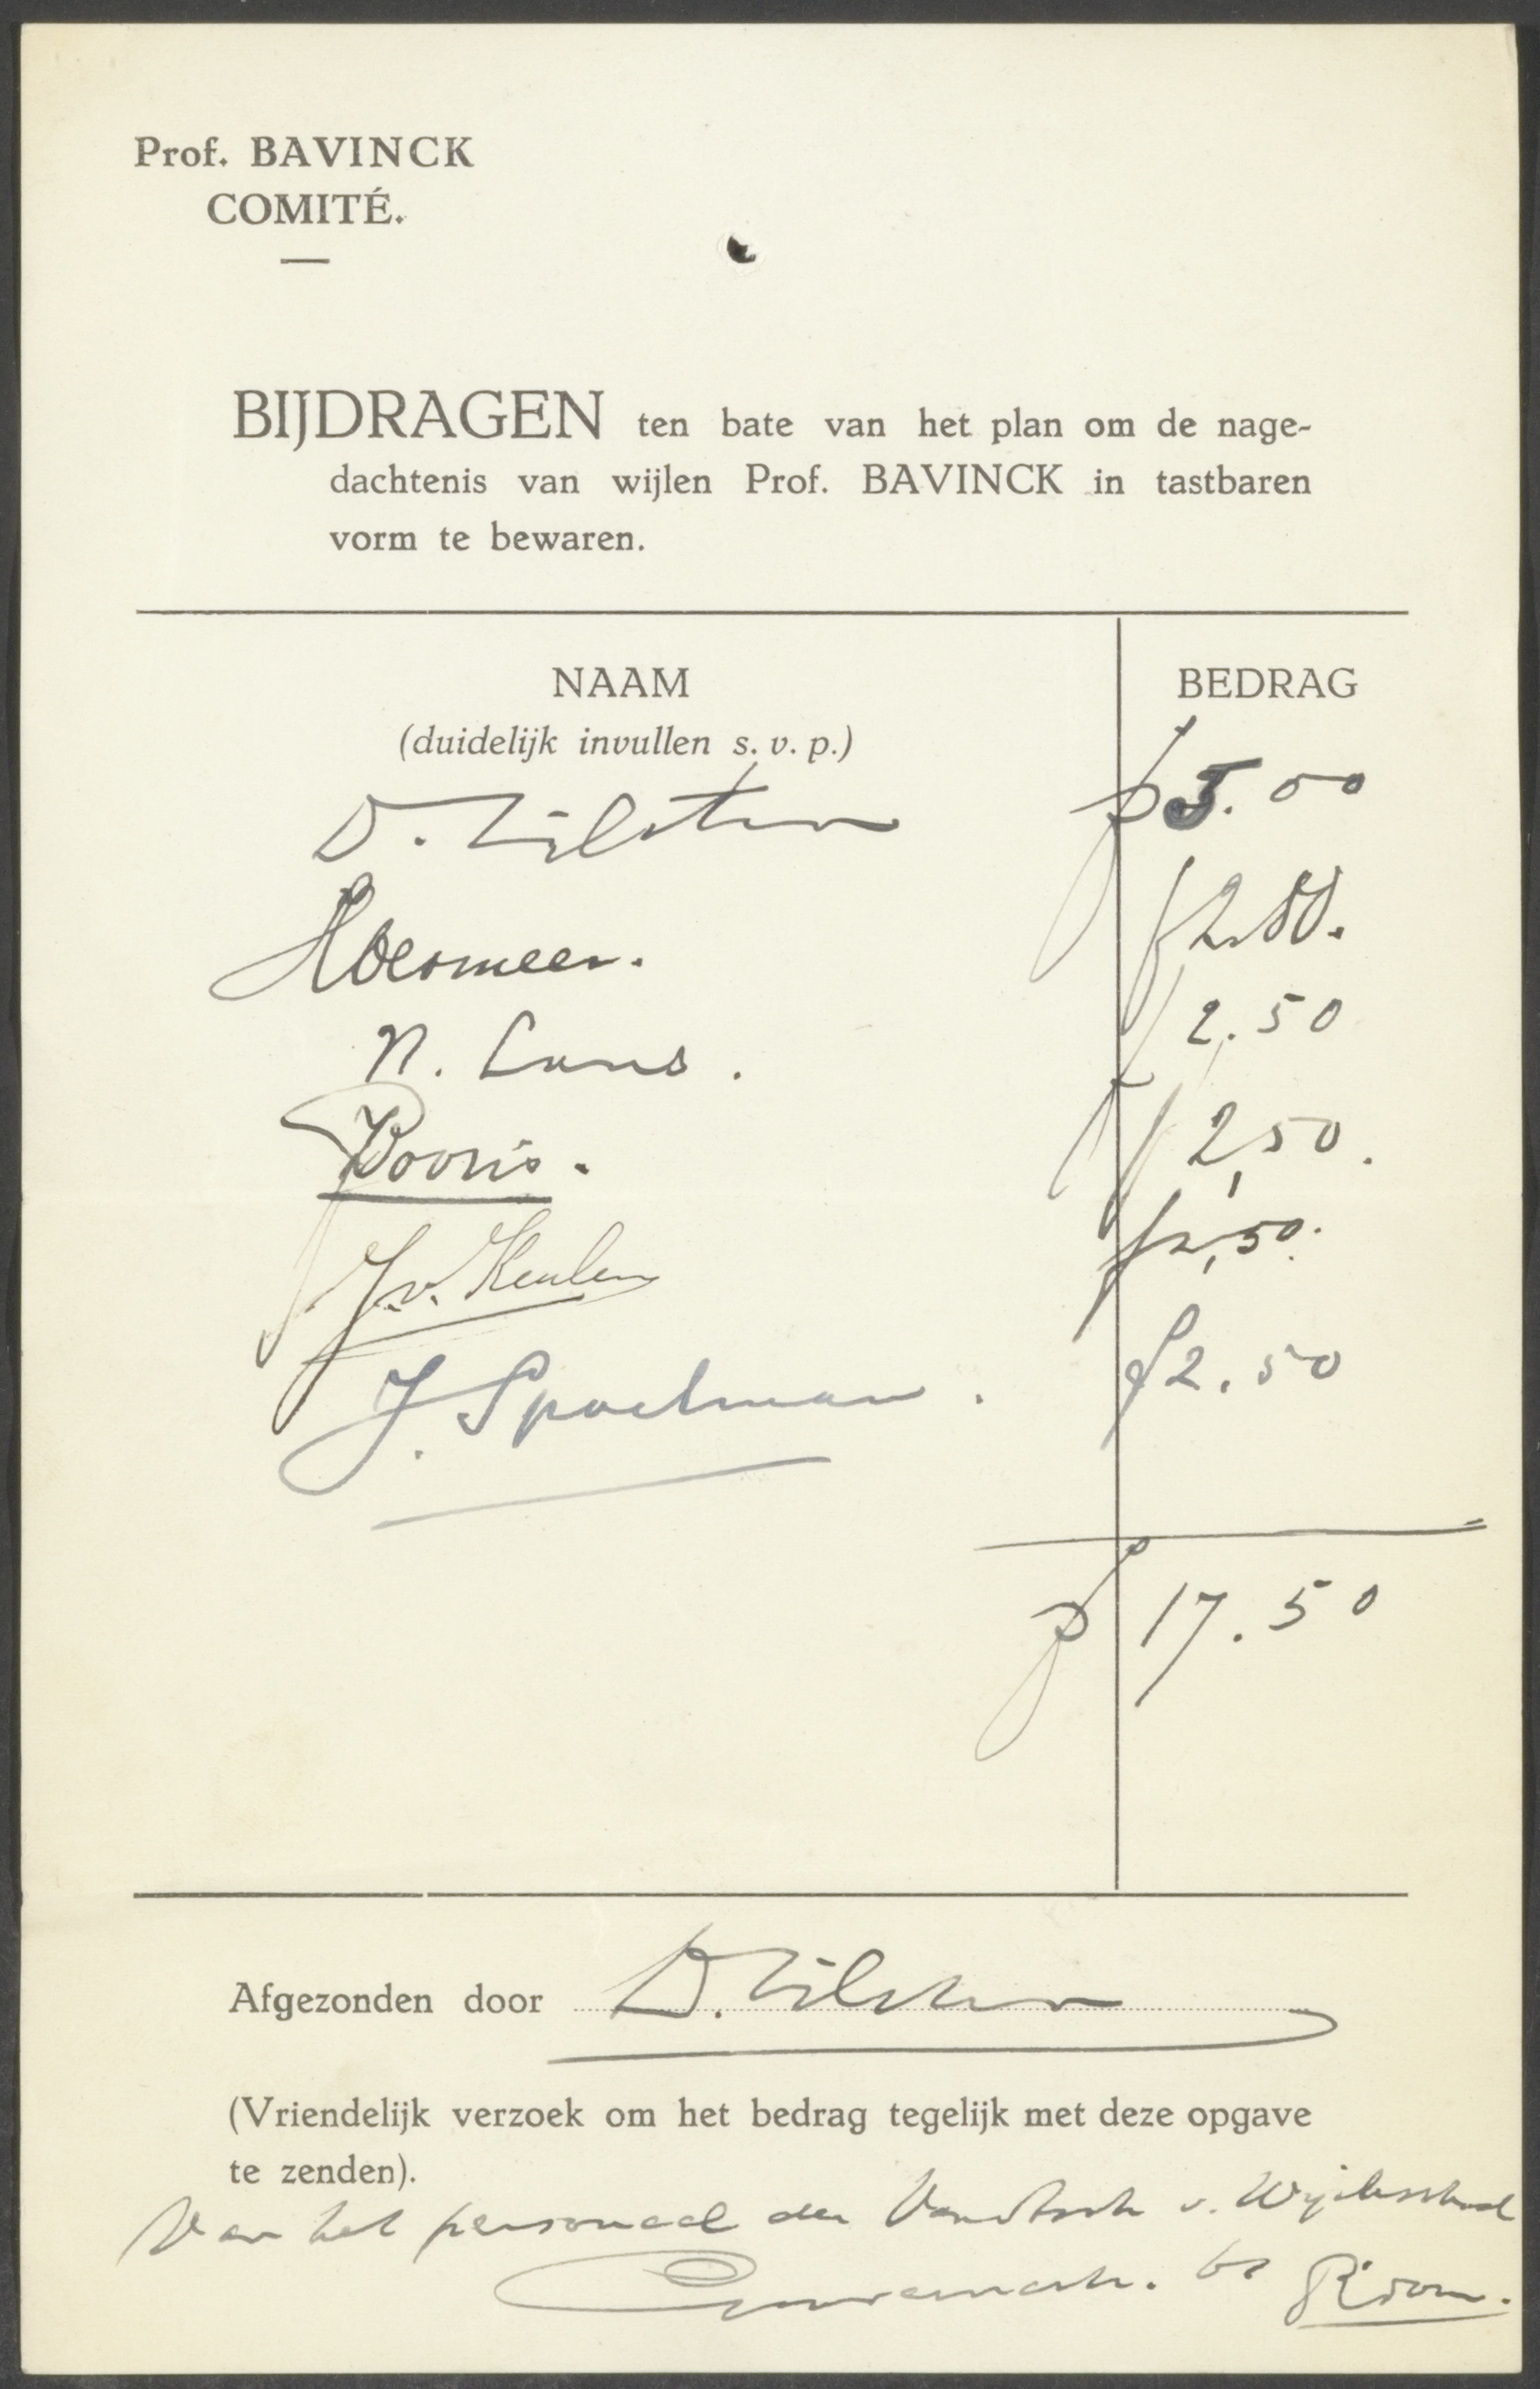 Prof. BAVINCK
COMITÉ.
BIJDRAGEN ten bate van het plan om de nage-
dachtenis van wijlen Prof. BAVINCK in tastbaren
vorm te bewaren.
NAAM BEDRAG
(duidelijk invullen s. v. p.)
D. Zilstra ƒ 5.00
ƒ 2.50.
N. Lans. ƒ 2.50
ƒ 2,50.
J. v. Keulen ƒ 2,50.
J. Spoelman. ƒ 2.50
ƒ 17.50
Afgezonden door D. Zilstra
(Vriendelijk verzoek om het bedrag tegelijk met deze opgave
te zenden).
Van het personeel der v.
R'dam.